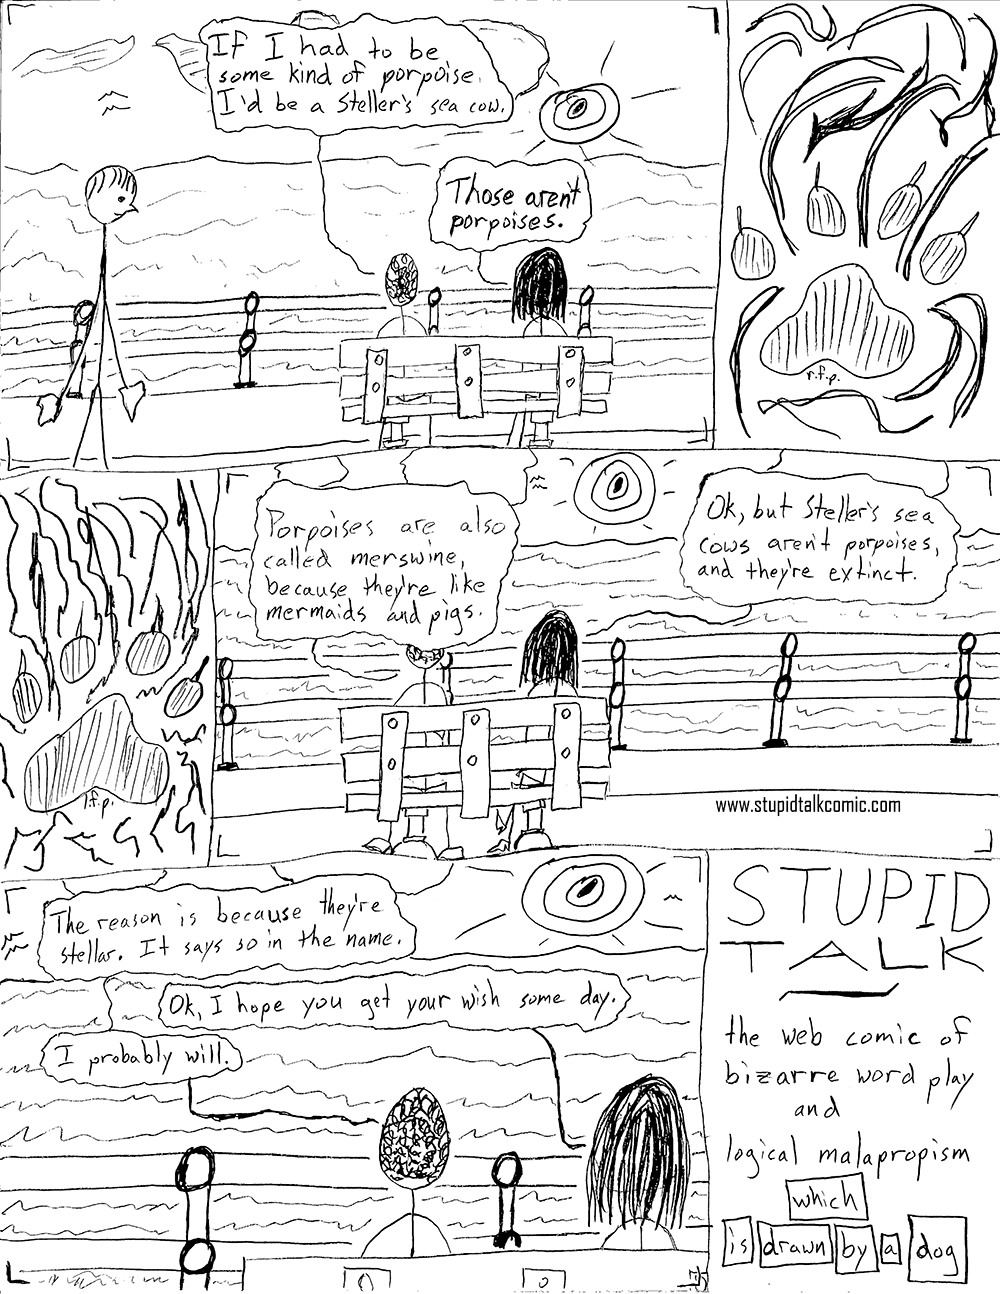 If I had to be
some kind of porpoise.
I'd be a Steller's sea cow.
Those aren't
porpoises.
r.f.p.
l.f.p.
Porpoises are also
called merswine,
because they're like
mermaids and pigs.
Ok, but Steller's sea
cows aren't porpoises,
and they're extinct.
www.stupidtalkcomic.com
The reason is because they're
stellar. It says so in the name.
Ok, I hope you get your wish some day.
I probably will.
STUPID
TALK
the web comic of
bizarre word play
and
logical malapropism
which
is drawn by a dog